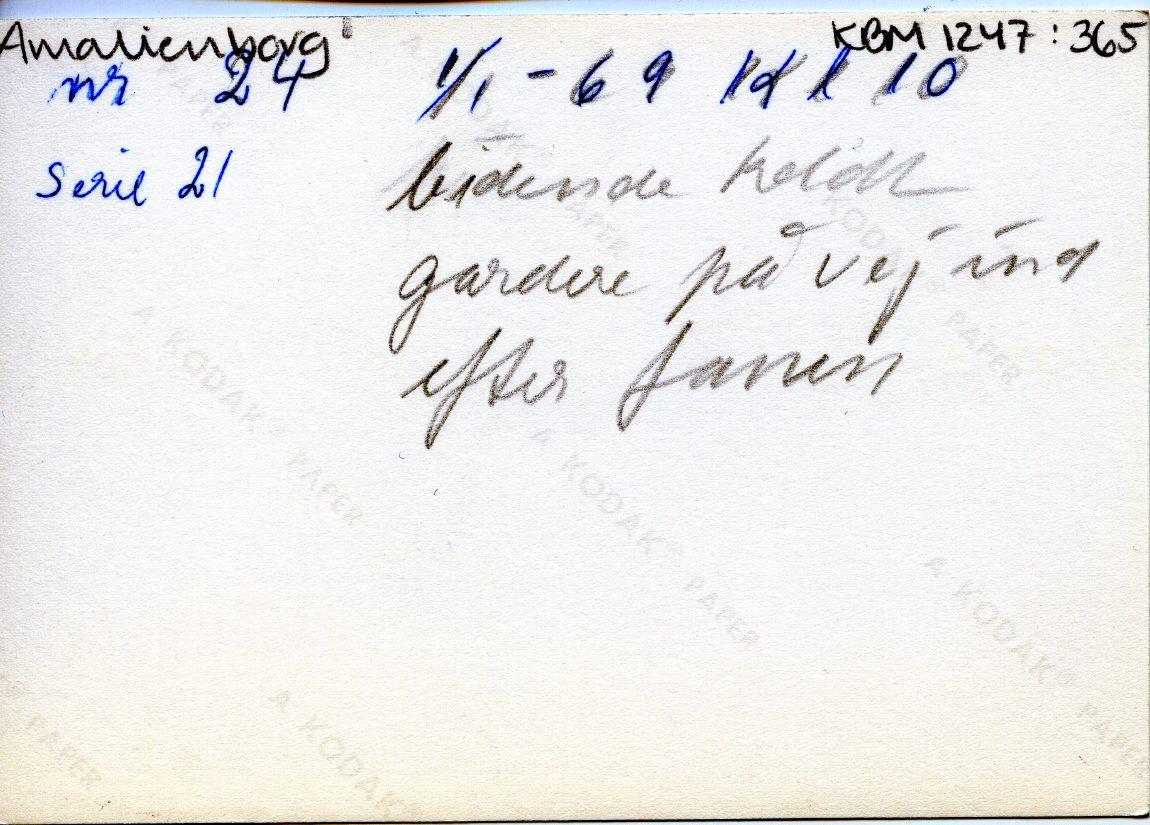 Amalienborg KBM 1247:365
nr 24 1/1-69 Kl 10
Serie 21 bidende koldt
gardere på vej ind
efter fanen
A KODAK® PAPER
A KODAK® PAPER
A KODAK® PAPER
A KODAK® PAPER
A KODAK® PAPER
A KODAK®
PAPER